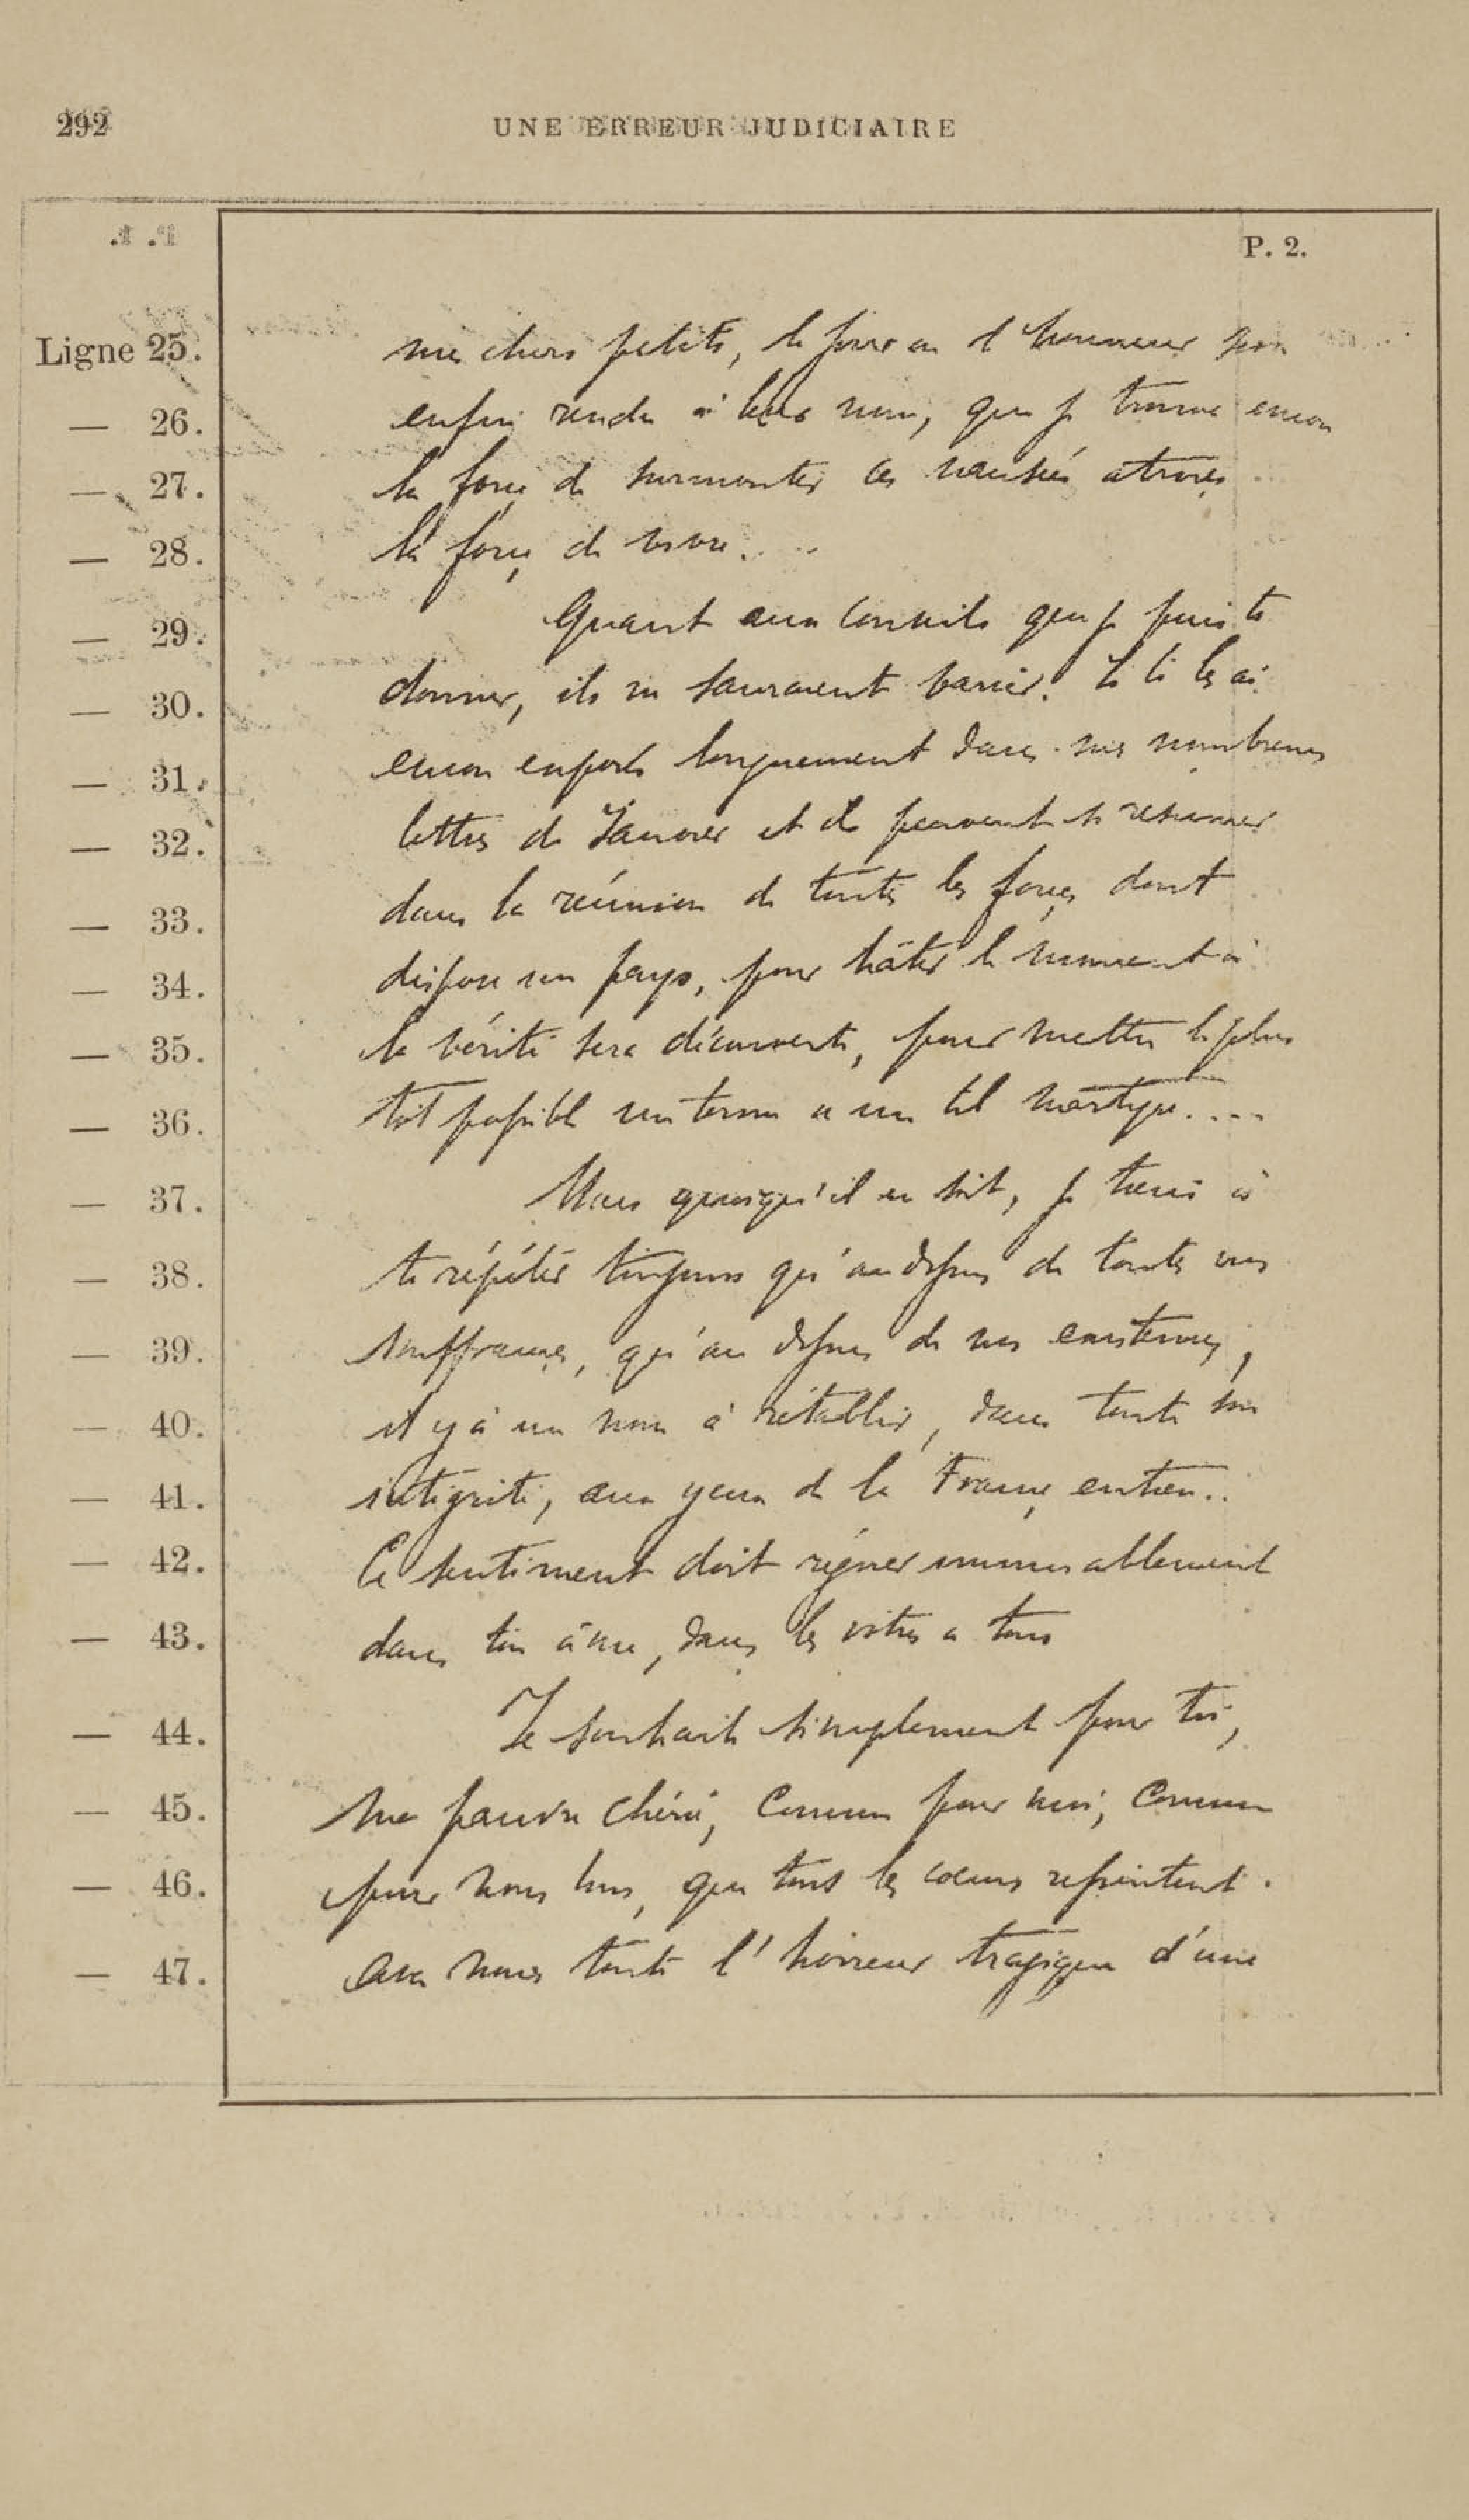 292
UNE ERREUR JUDICIAIRE
P. 2.
Ligne 25. mes chers petits, le jour où l'honneur sera
— 26. enfin rendu à leur nom, que je trouve encore
— 27. la force de surmonter ces nausées atroces
— 28. la force de vivre....
— 29. Quant aux conseils que je puis te
— 30. donner, ils ne sauraient varier. Je te les ai
— 31. encore exposés longuement dans mes nombreuses
— 32. lettres de Janvier et ils peuvent se résumer
— 33. dans la réunion de toutes les forces dont
— 34. dispose un pays, pour hâter le moment où
— 35. la vérité sera découverte, pour mettre le plus
— 36. tôt possible un terme à un tel martyre....
— 37. Mais quoiqu'il en soit, je tiens à
— 38. te répéter toujours qu'au dessus de toutes nos
— 39. souffrances, qu'au dessus de nos existences,
— 40. il y a un nom à rétablir, dans toute son
— 41. intégrité, aux yeux de la France entière..
— 42. Ce sentiment doit régner immuablement
— 43. dans ton âme, dans les vôtres à tous
— 44. Je souhaite simplement pour toi,
— 45. ma pauvre chérie, comme pour moi, comme
— 46. pour nous tous, que tous les cœurs ressentent
— 47. avec nous toute l'horreur tragique d'une